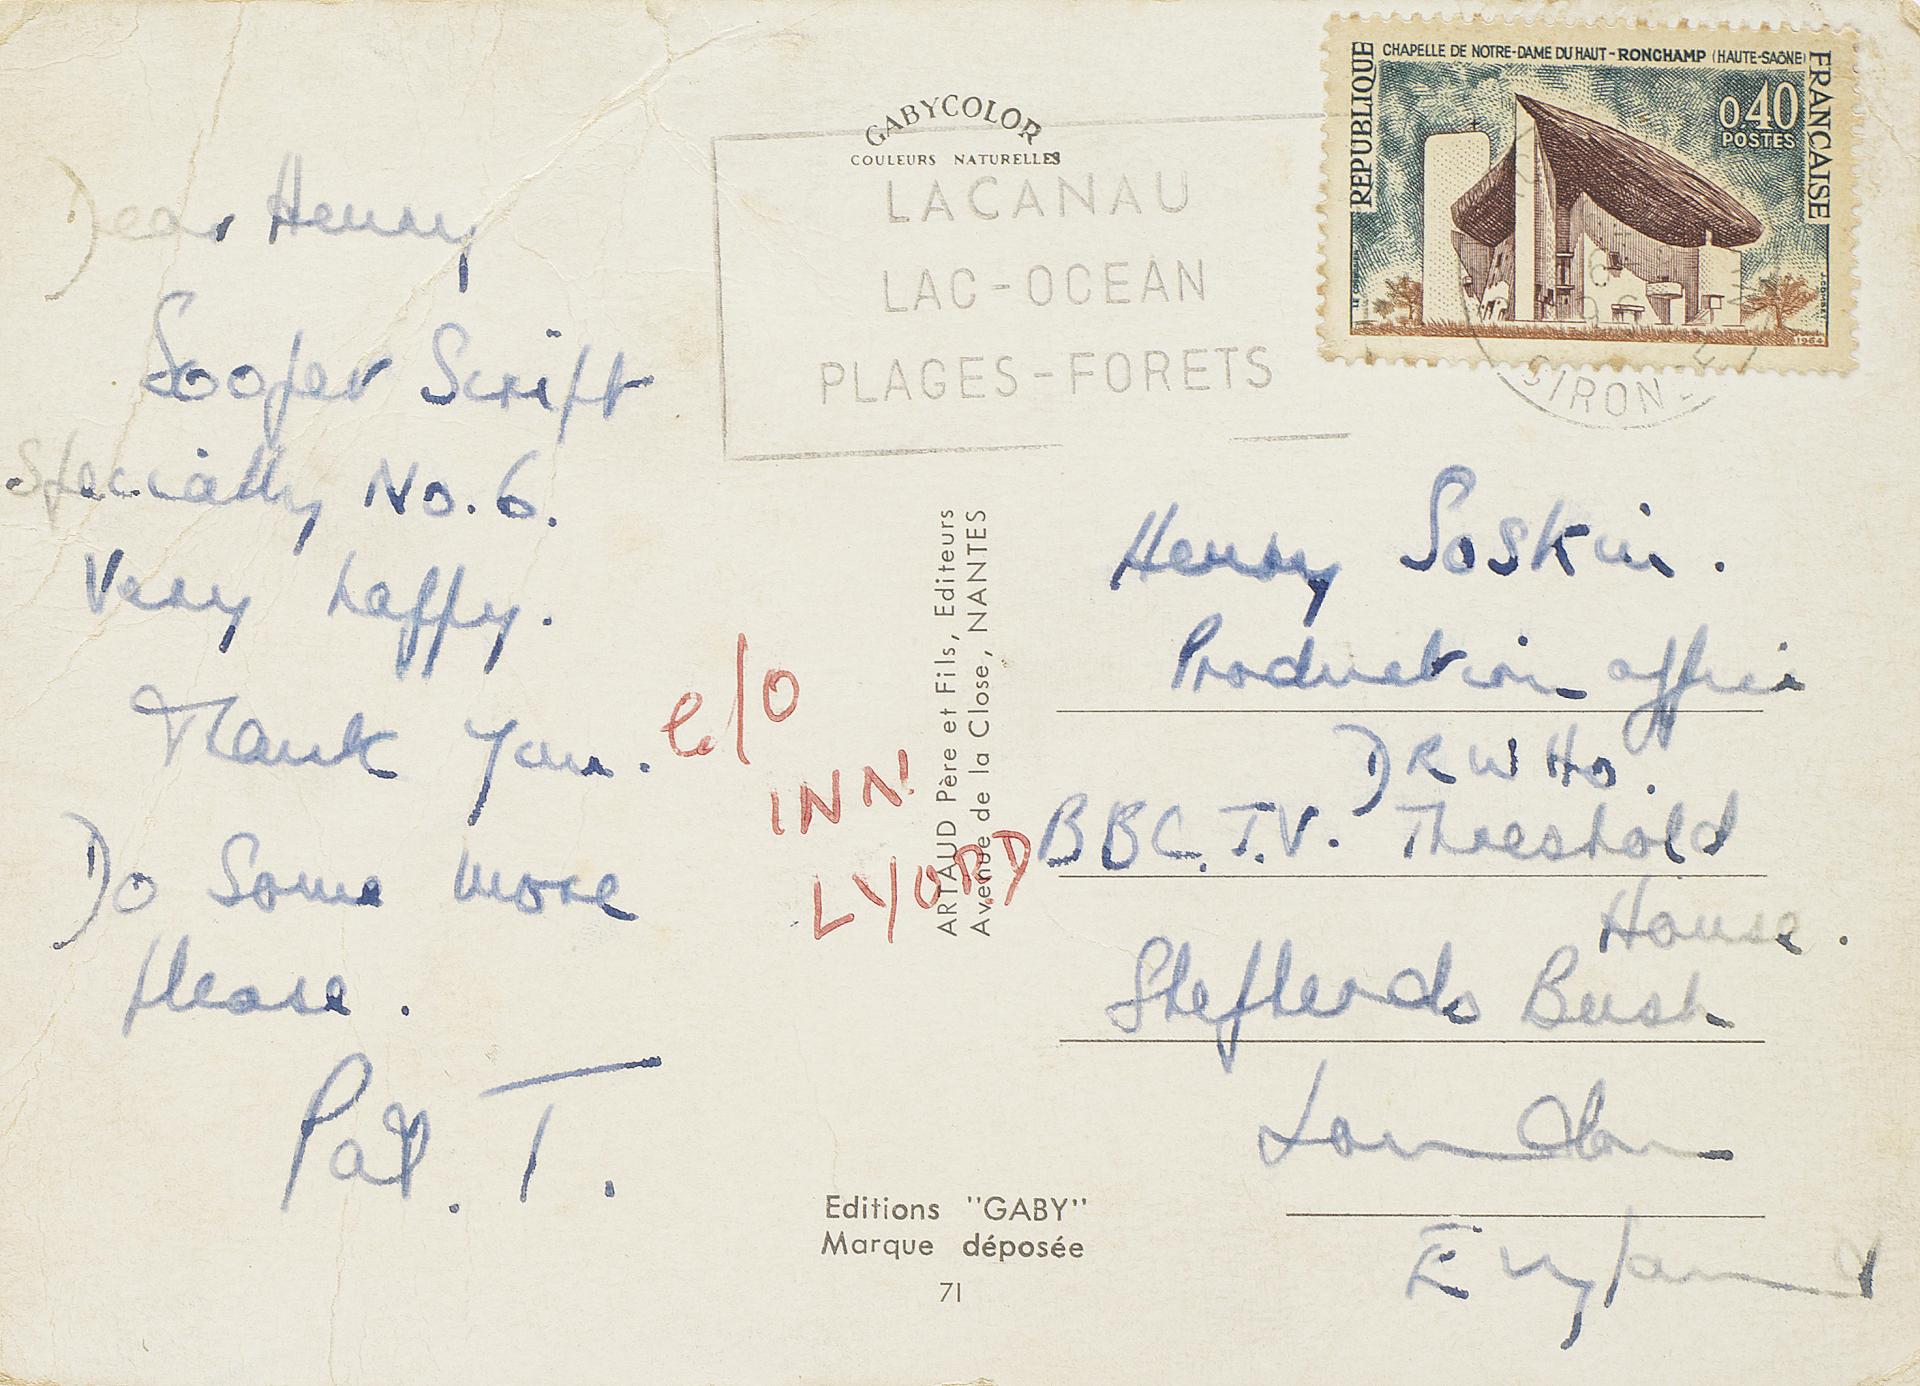 Dear Henry
Sooper Script
Specially No. 6.
Very happy.
Thank you.
Do some more
please.
Pat. T.
GABYCOLOR
COULEURS NATURELLES
LACANAU
LAC-OCEAN
PLAGES-FORETS
REPUBLIQUE FRANÇAISE
CHAPELLE DE NOTRE-DAME DU HAUT-RONCHAMP (HAUTE-SAÔNE)
0,40
POSTES
1964
GIRONDE
ARTAUD Père et Fils, Editeurs
Avenue de la Close, NANTES
c/o
INN
LYORD
Henry Soskin.
Production office
DR WHo.
BBC. T.V. Threshold
House.
Shepherds Bush
London
England
Editions "GABY"
Marque déposée
71